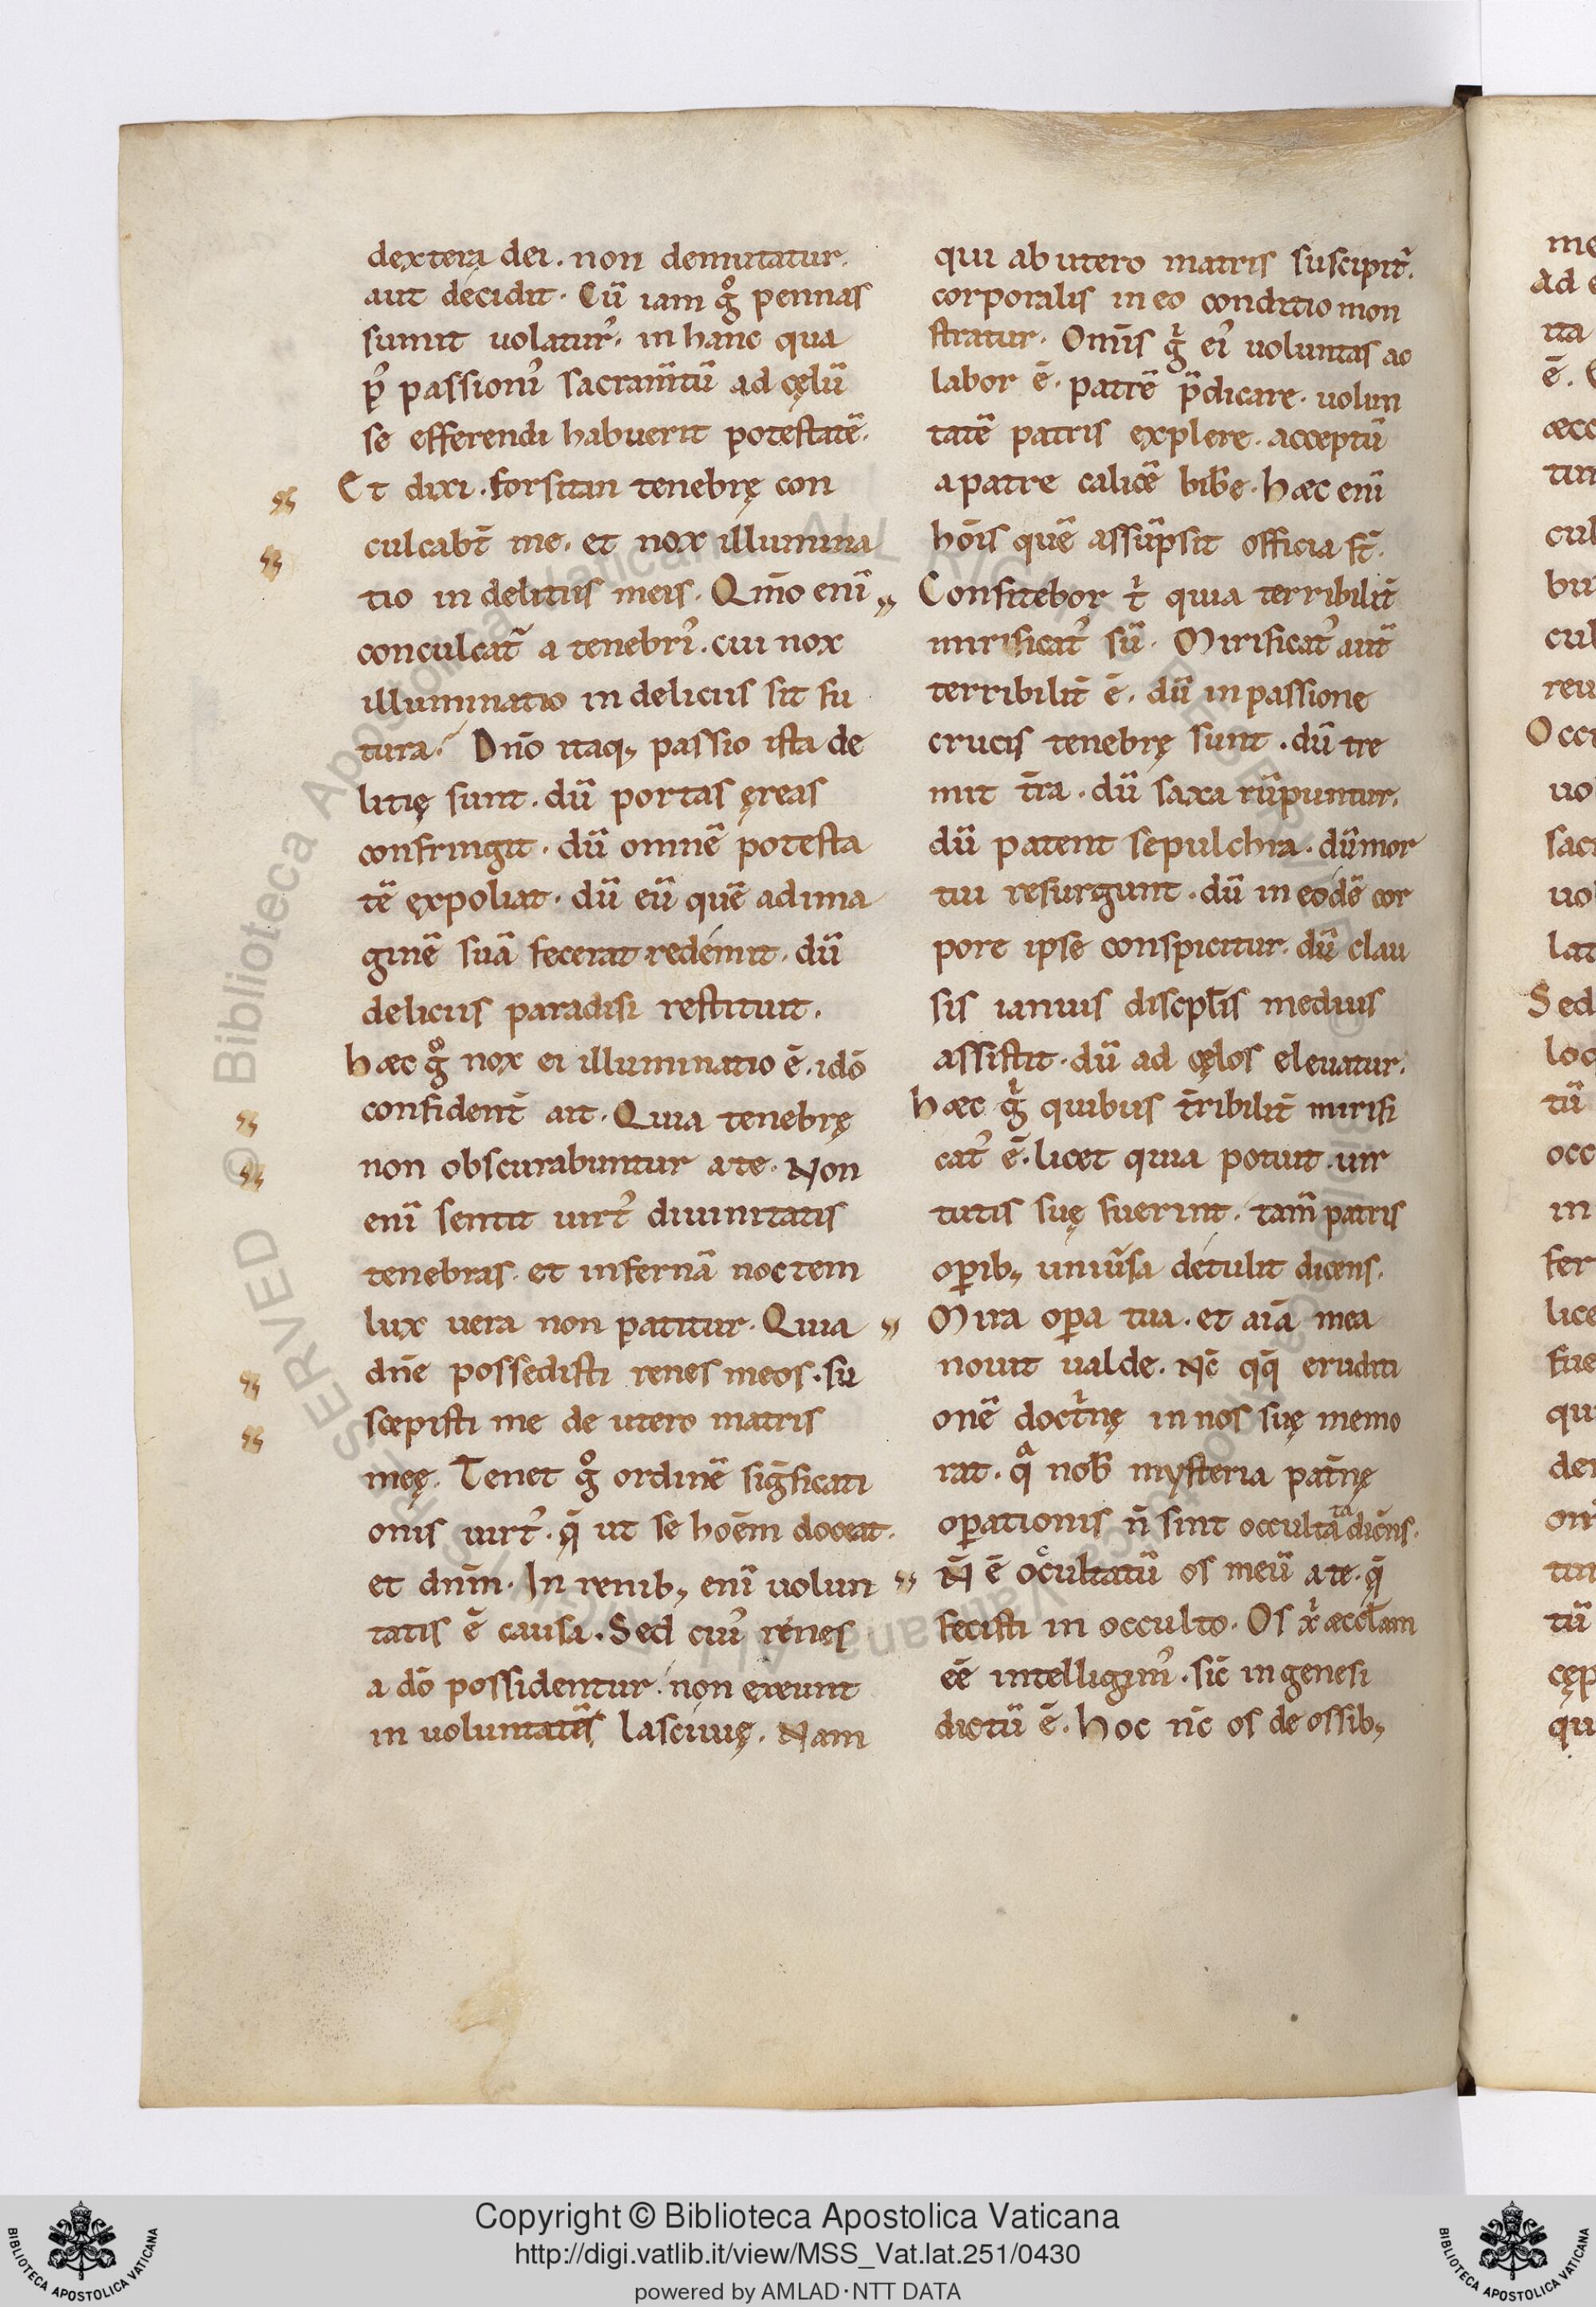 dextera dei. non demutatur.
aut decidit. Cū iam gͦ pennas
sumit uolatur᾽. in hanc qua
p᾽ passioni᾽ sacram̄tū ad cęlū
se efferendi habuerit potestatē.
Et dixi. forsitan tenebrę con
culcabt̄ me. et nox illumina
tio in delitiis meis. Qm̄o enī
conculcat᷑ a tenebri᾽. cui nox
illuminatio in deliciis sit fu
tura. Dn̄o itaq; passio ista de
litię sunt. dū portas ęreas
confringit. dū omnē potesta
tē expoliat. dū eū quē ad ima
ginē suā fecerat redemit. dū
deliciis paradisi restituit.
hæc gͦ nox ei illuminatio ē. idō
confident̄ ait. Quia tenebrę
non obscurabuntur a te. Non
enī sentit uirt᾽ diuinitatis
tenebras. et infernā noctem
lux uera non patitur. Quia
dn̄e possedisti renes meos. su
scepisti me de utero matris
meę. Tenet gͦ ordinē siḡficati
onis uirt᾽. q̄ ut se hoēm doceat.
et dn̄m. In renib; enī uolun
tatis ē causa. Sed cui᾽ renes
a dō possidentur. non exeunt
in uoluntatēs lasciuię. Nam
qui ab utero matris suscipit᷑.
corporalis in eo conditio mon
stratur. Om̄is gͥ ei᾽ uoluntas ac
labor ē. patrē p̄dicare. uolun
tatē patris explere. acceptū
a patre calicē bib̄e. hæc enī
hōis quē assūpsit officia st̄.
Confitebor tͥ quia terribilit̄
mirificat᾽ sū. Mirificat᾽ aut̄
terribilit̄ ē. dū in passione
crucis tenebrę sunt. dū tre
mit t̄ra. dū saxa rūpuntur.
dū patent sepulchra. dū mor
tui resurgunt. dū in eodē cor
pore ipse conspicitur. dū clau
sis ianuis discpl̄is mediuis
assistit. dū ad cęlos eleuatur.
hæc gͥ quibus t̄ribilit̄ mirifi
cat᾽ ē. licet quia potuit. uir
tutis suę fuerint. tam̄ patris
opib; uniūsa detulit dicens.
Mira opa tua. et aīa mea
nouit ualde. Nc̄ qq̄ eruditi
onē doctͥnę in nos suę memo
rat. qͣ nob̄ mysteria pat̄nę
opationis n̄ sint occulta dic̄ns.
ta
N̄ ē ocͨultatū os meū a te. q̄
fecisti in occulto. Os xͥ æccl̄am
eē intelligim᾽. sic̄ in genesi
dictū ē. hoc nc̄ os de ossib;
me
Ad e
ita
ē.
æcc
tun
cul
bu
cul
reu
Occu
uo
sacr
uol
lat
Sed
loq
tū
occ
in
fer
lice
fue
qu
der
om
tur
tū
cęp
qu
© Biblioteca Apostolica Vaticana ALL RIGHTS RESERVED
Copyright © Biblioteca Apostolica Vaticana
http://digi.vatlib.it/view/MSS_Vat.lat.251/0430
powered by AMLAD·NTT DATA
BIBLIOTECA APOSTOLICA VATICANA
BIBLIOTECA APOSTOLICA VATICANA